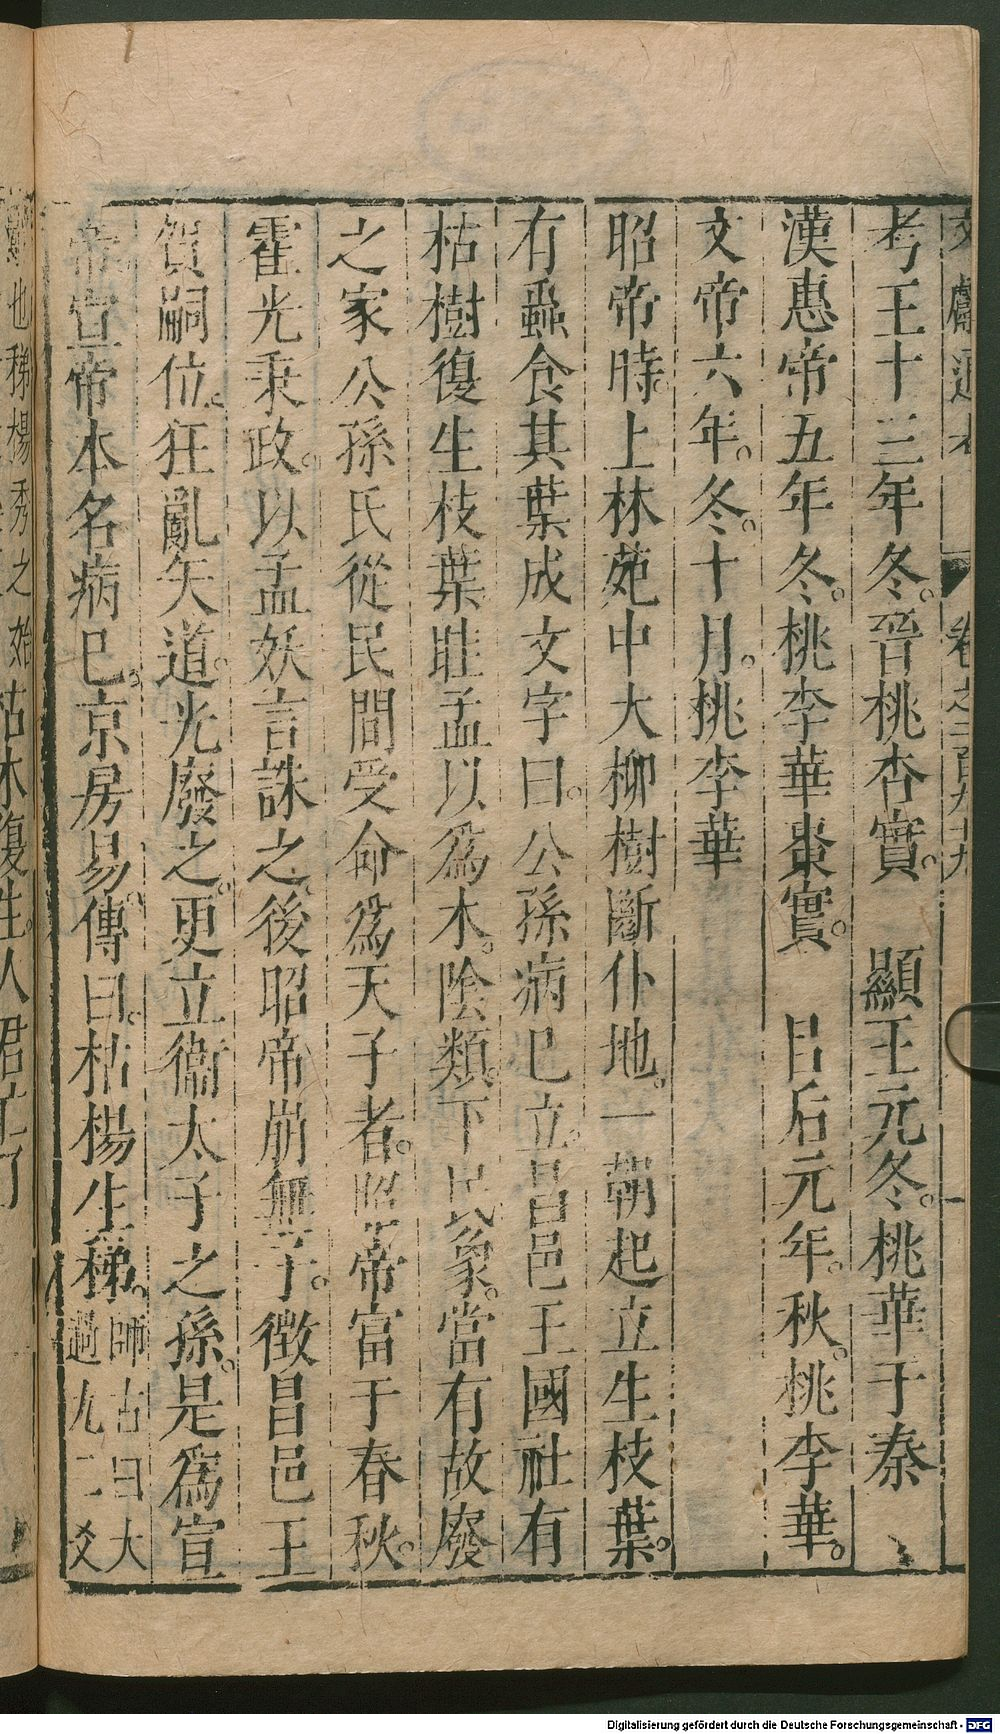 文獻通考 卷之二百九十九
考王十三年冬。晉桃杏實。 顯王元冬。桃華于秦
漢惠帝五年冬。桃李華棗實。 呂后元年。秋。桃李華。
文帝六年。冬。十月。桃李華
昭帝時。上林苑中大柳樹斷仆地。一朝起立生枝葉。
有蟲食其葉成文字曰。公孫病巳立。昌邑王國社有
枯樹復生枝葉眭孟以為木。陰類。下民象。當有故廢
之家公孫氏從民間受命為天子者。昭帝富于春秋。
霍光秉政。以孟妖言誅之。後昭帝崩無子。徴昌邑王
賀嗣位。狂亂失道。光廢之。更立衞太子之孫。是為宣
帝。宣帝本名病巳。京房易。傳曰。枯楊生稊。師古曰大過九二爻
也稊楊秀之始 枯木復生。人君
Digitalisierung gefördert durch die Deutsche Forschungsgemeinschaft - DFG